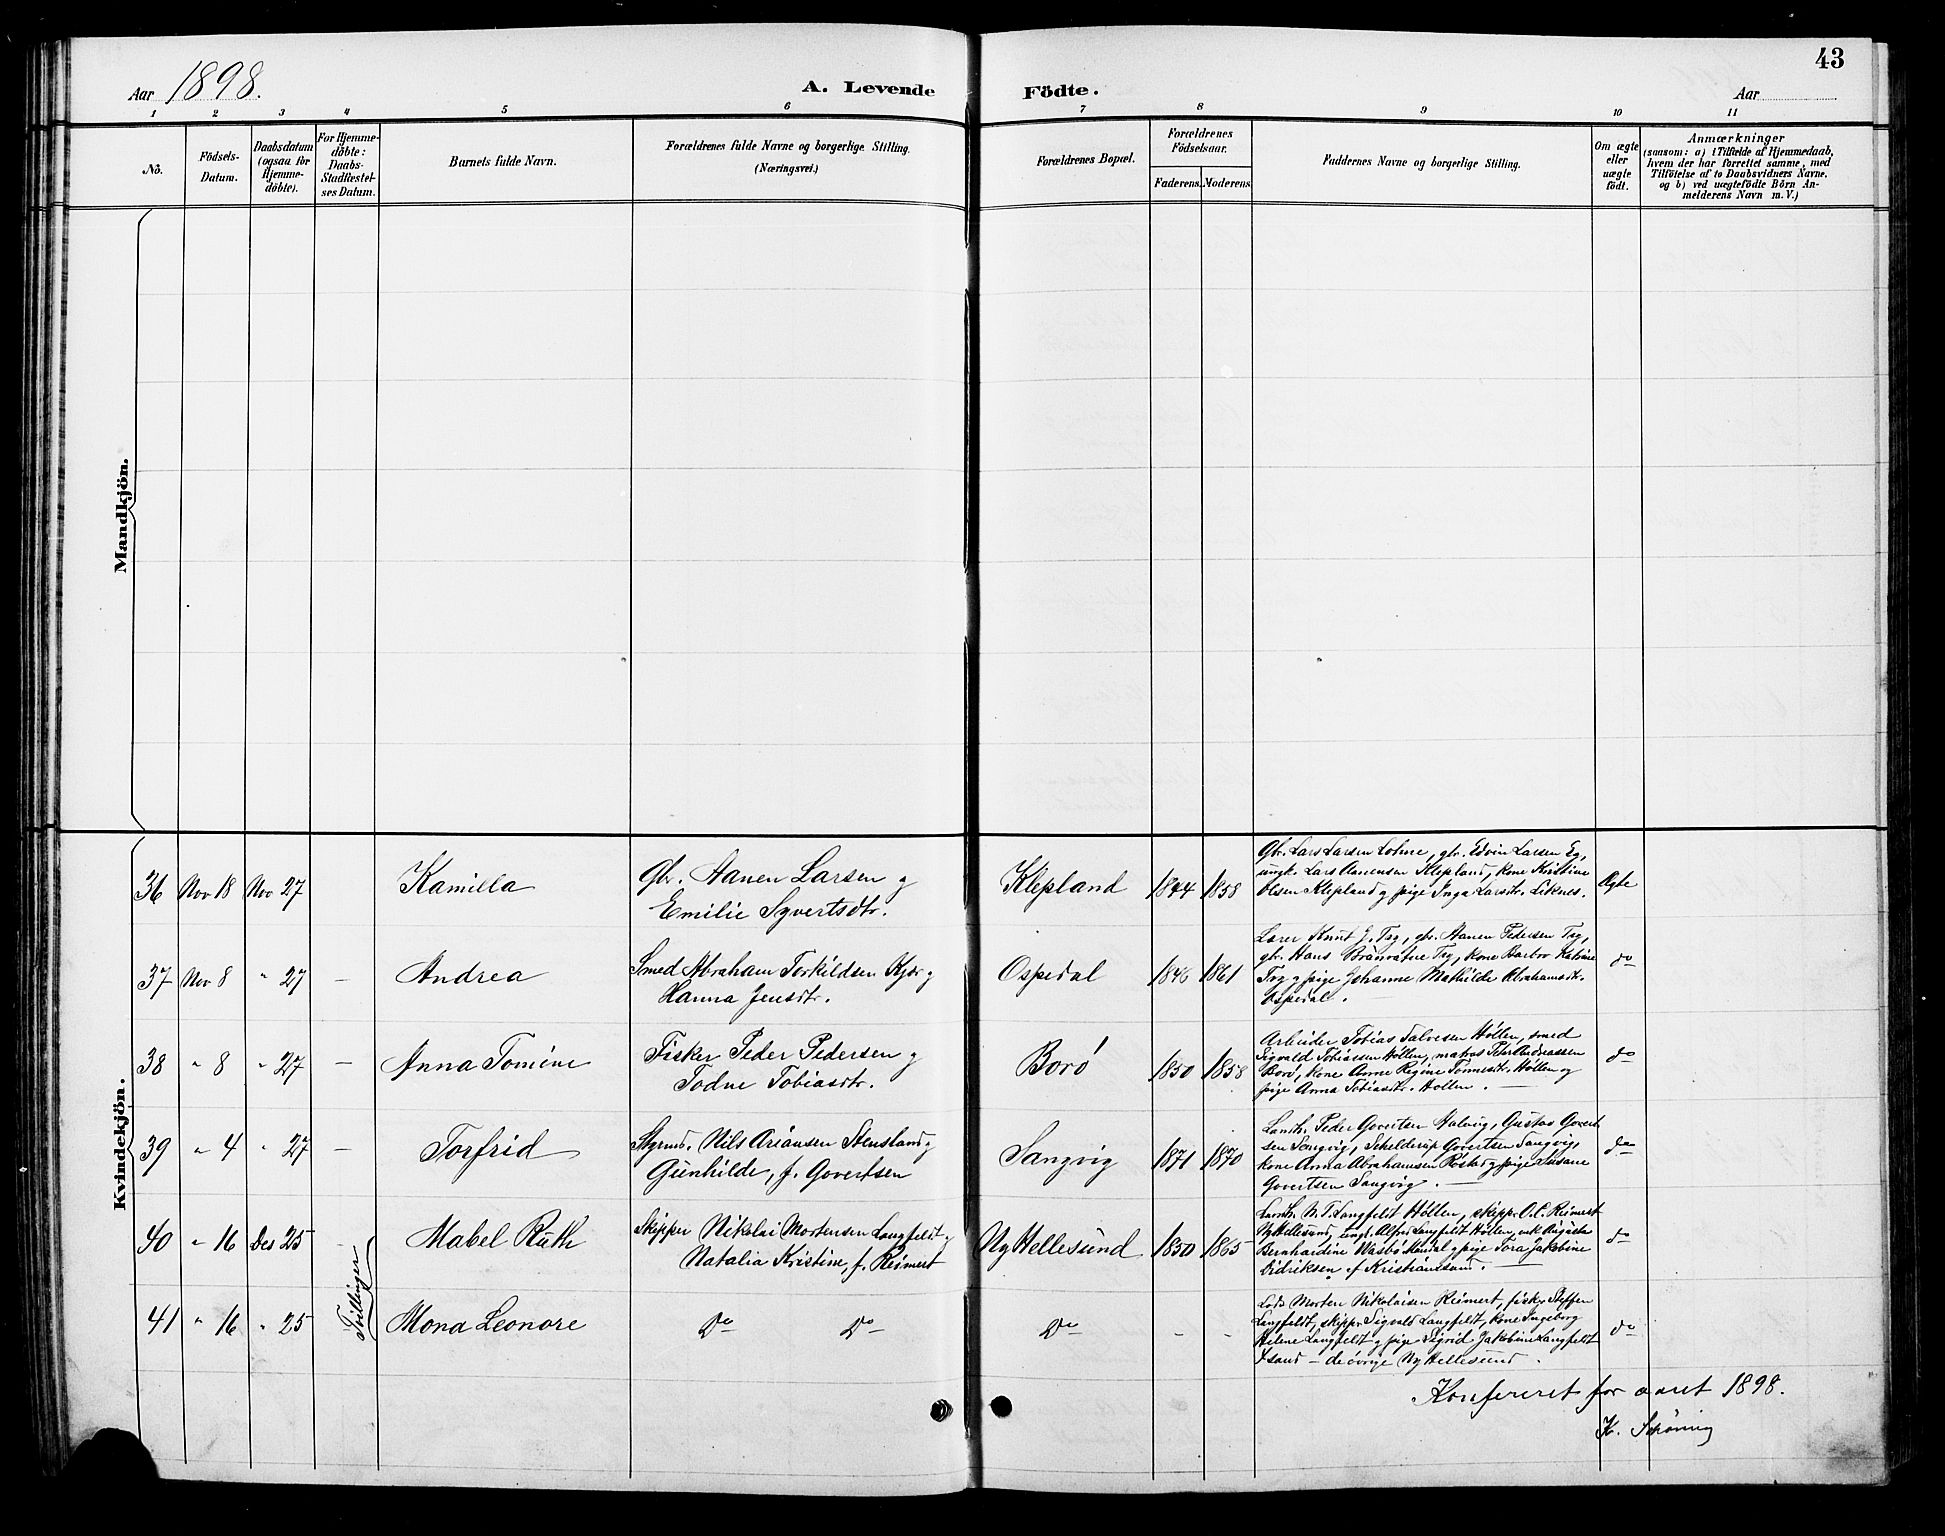 43
Aar 1898.
A. Levende Födte.
Aar
1 2 3 4 5 6 7 8 9 10 11
No.
Födsels-
Datum.
Daabsdatum
(ogsaa for
Hjemme-
döbte).
For Hjemme-
döbte:
Daabs-
Stadfæstel-
ses Datum.
Barnets fulde Navn.
Forældrenes fulde Navne og borgerlige Stilling.
(Næringsvei.)
Forældrenes Bopæl.
Forældrenes
Födselsaar.
Faderens. Moderens.
Faddernes Navne og borgerlige Stilling.
Om ægte
eller
uægte
födt.
Anmærkninger
(saasom: a) i Tilfælde af Hjemmedaab,
hvem der har forrettet samme, med
Tilföielse af to Daabsvidners Navne,
og b) ved uægtefödte Börn An-
melderens Navn m. V.)
Mandkjön.
Kvindekjön.
36 Nov 18 Nov 27 Kamilla
Gbr. Aanen Larsen g
Emilie Syvertsdtr.
Klepland 1844 1858
Gbr. Lars Larsen Lohne, gbr. Edvin Larsen Eg,
ungk. Lars Aanensen Klepland, Kone Kristine
Olsen Klepland g pige Inga Larsdtr. Liknes.
Ægte
37 Nov 8 " 27 — Andrea
Smed Abraham Torkildsen Kjær g
Hanna Jensdtr.
Ospedal 1846 1861
Lærer Knut J. Try, gbr. Aanen Pedersen Try,
gbr. Hans Try, Kone Barbro Katrine
Try g pige Johanne Mathilde Abrahamsdtr.
Ospedal.
do
38 " 8 " 27 — Anna Tomine
Fisker Peder Pedersen g
Todne Tobiasdtr.
Borö 1850 1858
Arbeider Tobias Salvesen Höllen, smed
Sigvald Tobiassen Höllen, matros Peder Andreassen
Borö, Kone Anne Regine Tönnesdtr. Höllen og
pige Anna Tobiasdtr. Höllen. —
do
39 " 4 " 27 — Torfrid
Styrmd. Nils Ariansen Stensland g
Gunhilde, f. Govertsen
Sangvig 1871 1870
Landh. Peder Govertsen Valvig, Gustav Govert
sen Sangvig, Schelderup Govertsen Sangvig,
Kone Anna Abrahamsen g pige Susane
Govertsen Sangvig. —
do
40 " 16 Des 25 Mabel Ruth
Skipper Nikolai Mortensen Langfeldt g
Natalia Kristine, f. Reimert
Ny Hellesund 1850 1865
Landh. N. T. Langfeldt Höllen, skipper O. C. Reimert
Ny Hellesund, ungk. Alfred Langfeldt Höllen,
Bernhardine Mandal g pige Tora Jakobine
Didriksen af Kristiansand. —
do
Tvillinger
41 " 16 " 25 Mona Leonore
Do Do
Do - -
Lods Morten Nikolaisen Reimert, fisker Steffen
Langfeldt, skipper Sigvald Langfeldt, Kone Ingeborg
Helene Langfeldt g pige Sigrid Jakobine Langfeldt
— de övrige Ny Hellesund.
do
Konfereret for aaret 1898.
K. Schöning